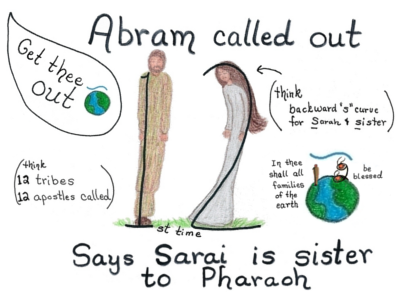 Abram called out
Get thee
out
(think
backward "s" curve
for Sarah & sister)
(think
12 tribes
12 apostles called)
In thee
shall all
families
of the
earth
be
blessed
1st time
Says Sarai is sister
to Pharaoh